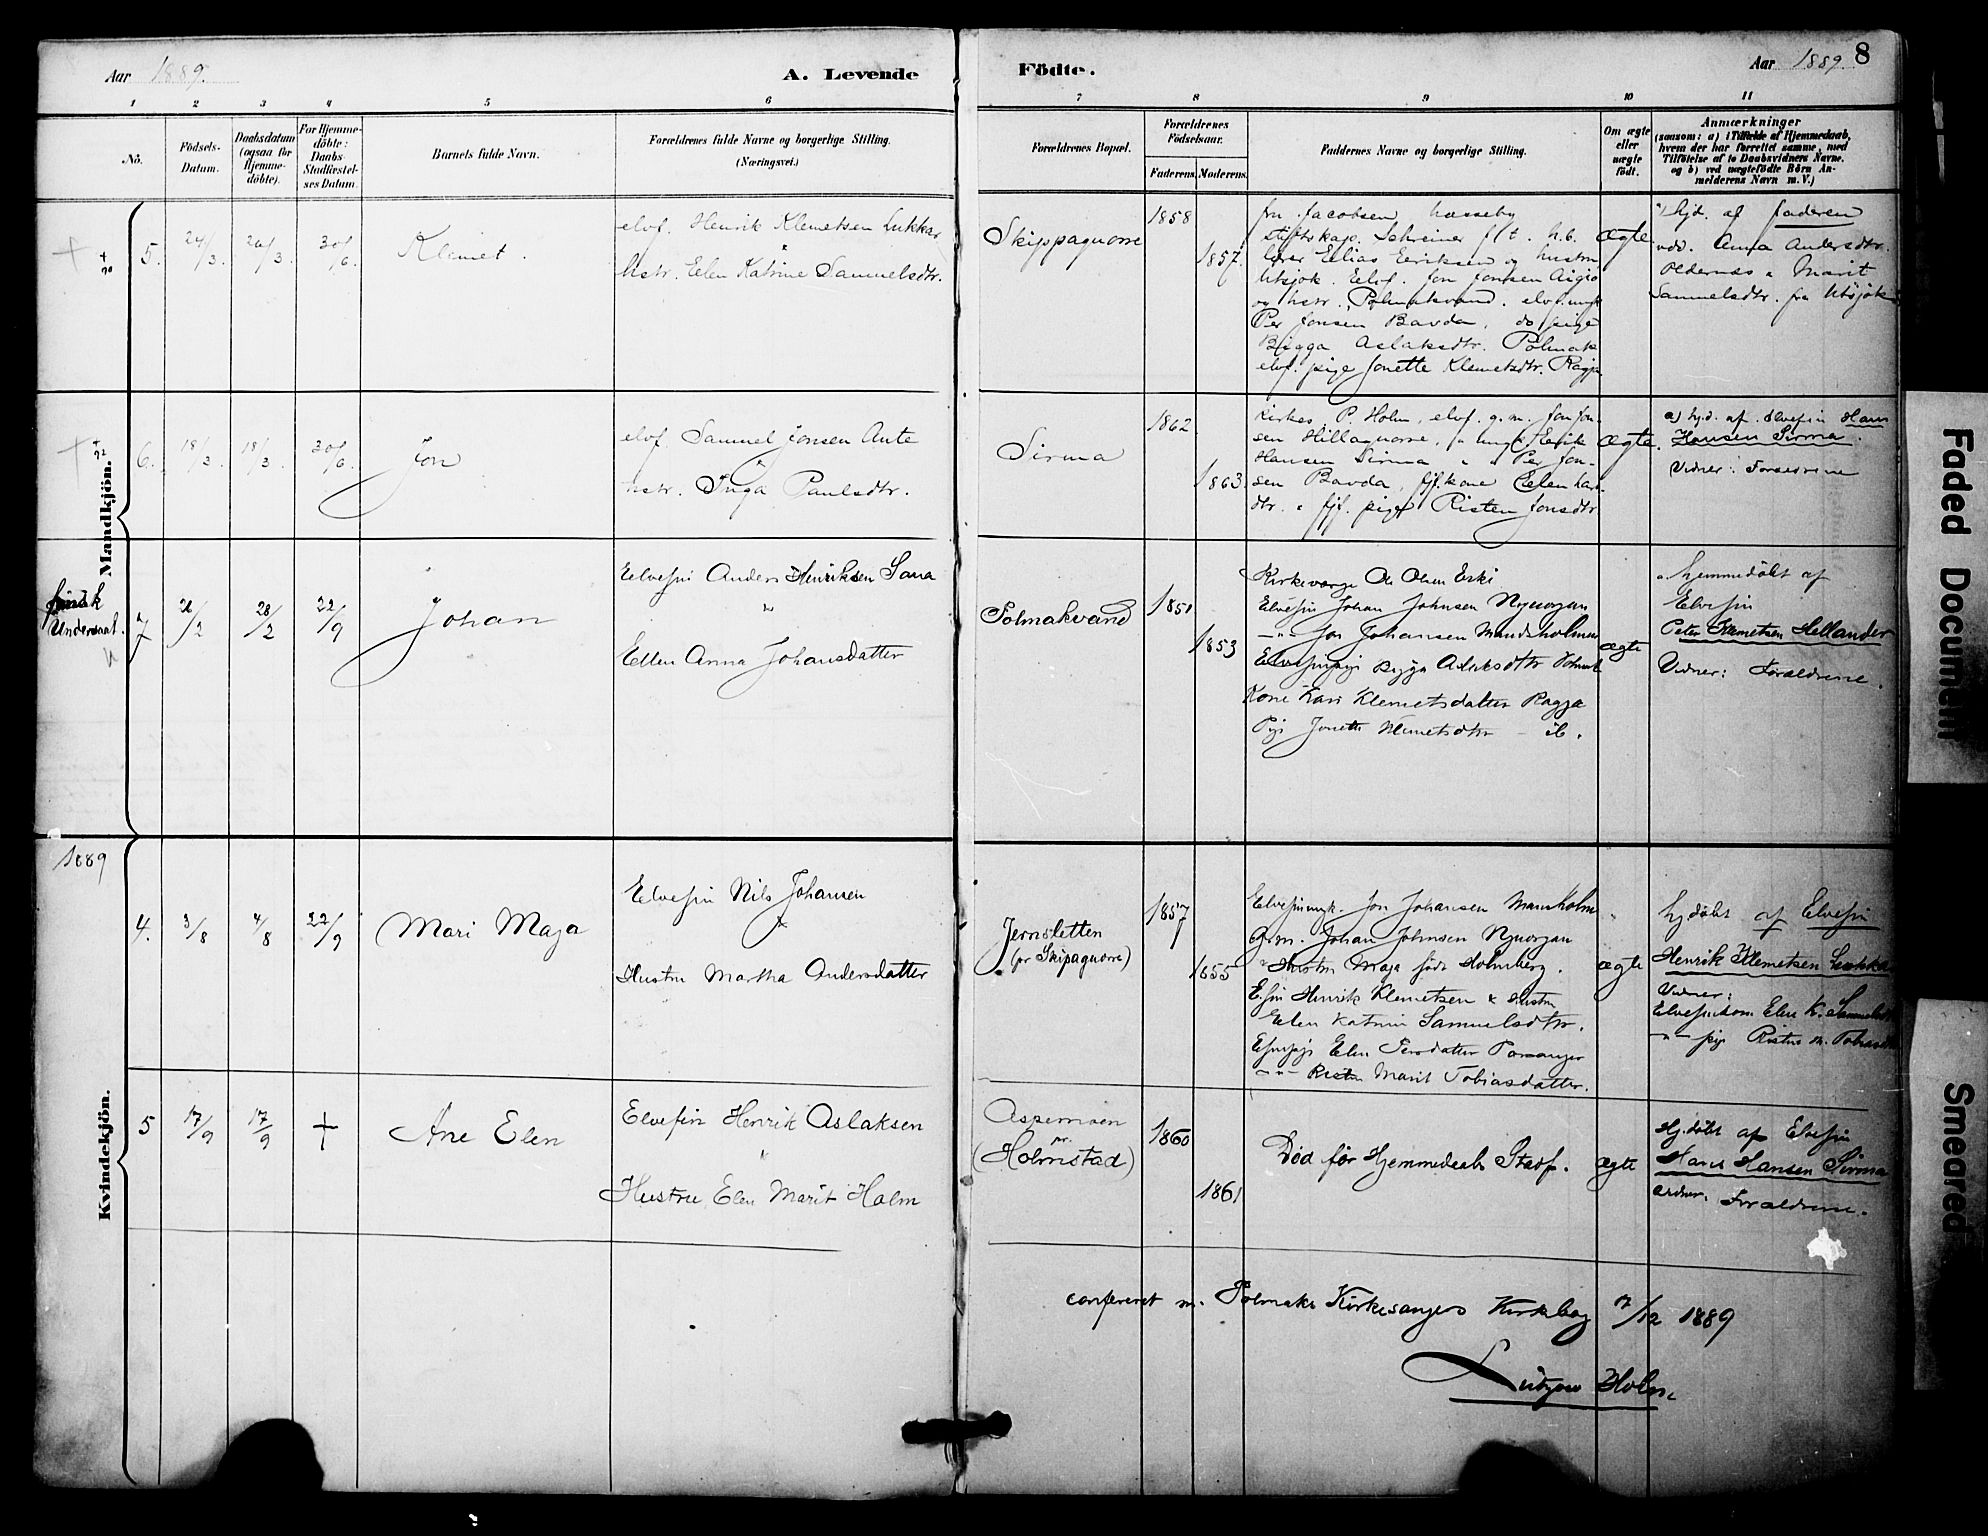 Aar 1889.
A. Levende
Födte.
Aar 1889.
8
1 2 3 4 5 6 7 8 9 10 11
Nö.
Födsels-
Datum.
Daabsdatum
(ogsaa for
Hjemme-
döbte).
For Hjemme-
döbte:
Daabs-
Stadfæstel-
ses Datum.
Barnets fulde Navn.
Forældrenes fulde Navne og borgerlige Stilling.
(Næringsvei.)
Forældrenes Bopæl.
Forældrenes
Födselsaar.
Faderens. Moderens.
Faddernes Navne og borgerlige Stilling.
Om ægte
eller
uægte
födt.
Anmærkninger
(saasom: a) i Tilfælde af Hjemmedaab,
hvem der har forrettet samme, med
Tilföielse af to Daabsvidners Navne,
og b) ved uægtefödte Börn An-
melderens Navn m. V.)
Mandkjön.
5. 24/3. 24/3. 30/6. Klemet.
elvf. Henrik Klemetsen Lukkar
"
hstr. Elen Katrine Samuelsdtr.
Skippaguorre
1858
1857.
fru Jacobsen,
stiftskap. Schreiner
Elias Eriksen og hustru
Utsjok. Elvf. Jon Jonsen Aigio
og hstr. Polmakvand. elvf. ungk
Per Jonsen Bavda, do pige
Bigga Aslaksdtr. Polmak
elvf. pige Jonette Klemetsdtr. Ragja
ægte
hjd. af faderen
vidn. Anna Andersdtr.
Oldernæs " Marit
Samuelsdtr. fra Utsjok
6. 18/3. 18/3. 30/6. Jon
elvf. Samuel Jonsen Aute
"
hstr. Inga Paulsdtr.
Sirma
1862
1863.
Kirkes. P. Holm, elvf. g.m. Jon Jon-
sen Hillaguorre, " ungk Erik
Hansen Sirma " " Per Jon-
sen Bavda, fjf. kone Elen Hans-
dtr. " fjf. pige Risten Jonsdtr
ægte.
a) hjd. af elvefin Hans
Hansen Sirma.
Vidner: Forældrene
finsk
Undersaat.
7 26/2 28/2 22/9 Johan
Elvefin Anders Henriksen Sara
"
Ellen Anna Johansdatter
Polmakvand
1851
1853
Kirkeværge Ole Olsen Erki
Elvefin Johan Johnsen Nyuorgan
—"— Jon Johansen Mandsholmen
Elvefinpige Bigga Aslaksdtr Polmak
Kone Kari Klemetsdatter Ragja
Pige Jonette Klemetsdtr — ib.
ægte
hjemmedöbt af
Elvefin
Peter Klemetsen Hellander
Vidner: Forældrene.
1889
Kvindekjön.
4. 3/8 4/8 22/9 Mari Maja
Elvefin Nils Johansen
&
Hustru Martha Andersdatter
Jernsletten
(pr Skipaguorre)
1857
1855
Elvefinungk. Jon Johansen Mansholm
Grm. Johan Johnsen Nyuorgan
" Hustru Maja född Holmberg.
E.fin Henrik Klemetsen & Hustru
Elen Katrin Samuelsdtr.
Efinpige Elen Persdatter Porsanger
—"— Risten Marit Tobiasdatter.
ægte
hjdöbt af Elvefin
Henrik Klemetsen Lukkar
Vidner:
Elvefinkone Elen K. Samuelsdtr
—"— pige Risten M. Tobiasdtr
5 17/9 17/9 + Ane Elen
Elvefin Henrik Aslaksen
"
Hustru Elen Marit Holm
Aspemoen
pr.
(Holmstad)
1860
1861
Död för Hjemmedaabs Stadf.
ægte
Hj.döbt af Elvefin
Hans Hansen Sirma
Vidner: Forældrene.
confereret m. Polmaks Kirkesangers Kirkebog 17/12 1889
Lützow Holm.
Faded Document
Smeared